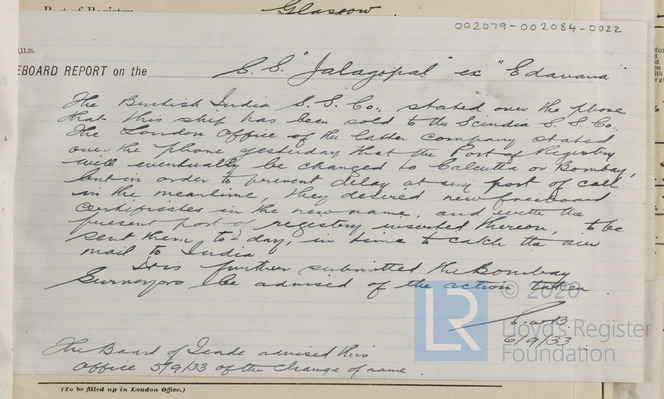 Port of Registry
Glasgow
002079-002084-0022
EBOARD REPORT on the
S.S. "Jalagopal" ex "Edavana"
The British India S.S. Co. stated over the phone
that this ship has been sold to the Scindia S.S. Co.
The London Office of the latter company stated
over the phone yesterday that the Port of Registry
will eventually be changed to Calcutta or Bombay,
but in order to prevent delay at any port of call
in the meantime, they desired new freeboard
certificates in the new name, and with the
present port of registry inserted thereon, to be
sent them to day, in time to catch the air
mail to India
It is further submitted the Bombay
Surveyors be advised of the action taken
6/9/33
The Board of Trade advised this
Office 5/9/33 of the change of name.
(To be filled up in London Office.)
LR
© 2020
Lloyd's Register
Foundation